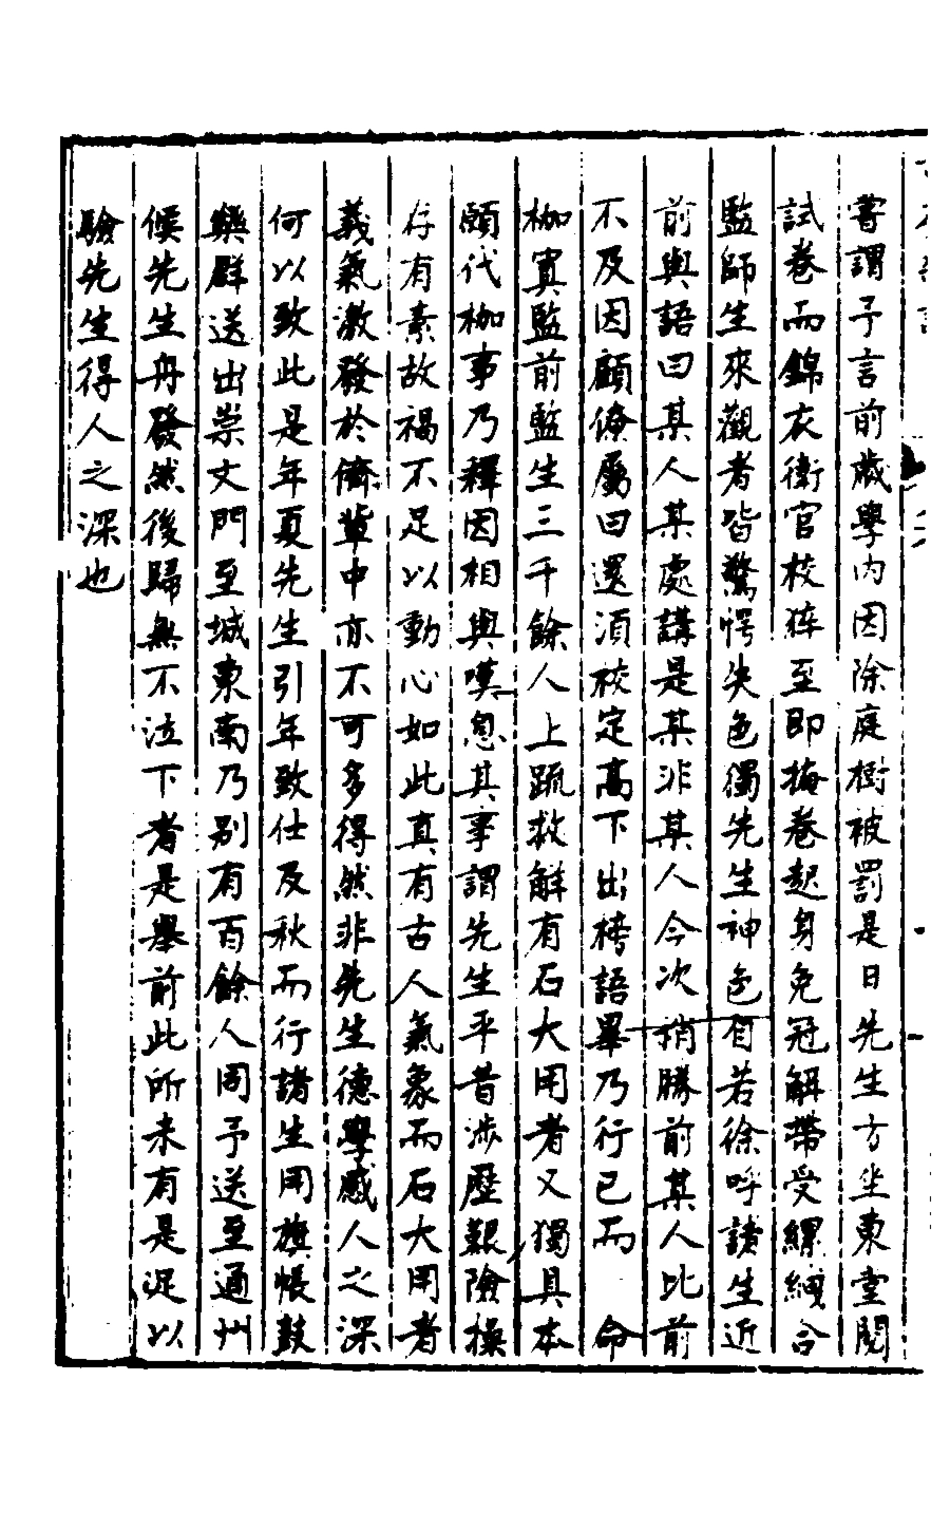 嘗謂予言前歲學內因除庭樹被罰是日先生方坐東堂閱
試卷而錦衣衛官校猝至即掩卷起身免冠解帶受縲絏合
監師生來觀者皆驚愕失色獨先生神色自若徐呼諸生近
前與語曰某人某處講是某非某人今次稍勝前某人比前
不及因顧僚屬曰還須校定高下出榜語畢乃行已而　命
枷寘監前監生三千餘人上疏救解有石大用者又獨具本
願代枷事乃釋因相與嘆息其事謂先生平昔涉歷艱險操
存有素故禍不足以動心如此真有古人氣象而石大用者
義氣激發於儕輩中亦不可多得然非先生德學感人之深
何以致此是年夏先生引年致仕及秋而行諸生用旗帳鼓
樂群送出崇文門至城東南乃別有百餘人同予送至通州
候先生舟發然後歸無不泣下者是舉前此所未有是足以
驗先生得人之深也